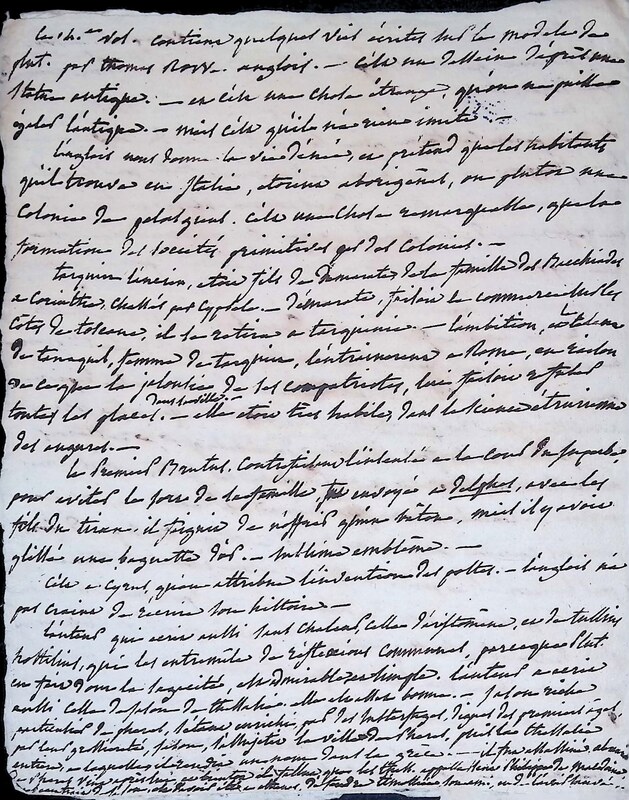 Ce 4.me vol. contient quelques vies écrites sur le modele de
plut. par thomas Rowe. anglois. — c'est un dessein d'après une
statue antique. — c'est une chose étrange, qu'on ne puisse
égaler l'antique. — mais c'est qu'il n'a rien imité —
L'anglois nous donne la vie d'énée, et prétend que les habitants
qu'il trouva en Italie, etoient aborigènes, ou plutot une
Colonie de pelasgiens. c'est une chose remarquable, que la
formation des societés primitives par des Colonies. —
tarquin l'ancien, etoit fils de Demarate de la famille des Bacchiades
a Corinthe, chassés par Cypsele. — demarate, faisoit le commerce sur les
Cotes de toscane, il se retira a tarquinie. — L'ambition, et
de tanaquil, femme de tarquin, l'entrainerent a Rome, en
de ce que la jalousie de ses compatriotes, lui faisoit refuser
toutes les places. dans sa ville. — elle etoit tres habile, dans la science étrurienne
des augures. —
Le premier Brutus. contrefaisant l'insensé a la cour du superbe
pour eviter le sort de sa famille, fut envoyé a delphes, avec les
fils du tiran. il feignit de n'offrir qu'un bâton, mais il y avoit
glissé une baguette d'or. — sublime emblême. —
C'est a Cyrus, qu'on attribue l'invention des postes. — L'anglois n'a
pas craint de récrire son histoire. —
L'auteur qui ecrit aussi sans chaleur, celle d'aristomène, et de tullus
hostilius, qui les entremêle de reflexions communes, parce que Plut.
en fait dont la sagacité, est admirable et simple. L'auteur a ecrit
aussi celle de jason de thessalie. elle est assez bonne. — jason riche
particulier de pheres, s'étant enrichi, par des
par leur jason, s'assujetit la ville de pheres, puis la thessalie
entiere a laquelle il rendit un nom dans la grèce. — il fut assassiné,
de pheres